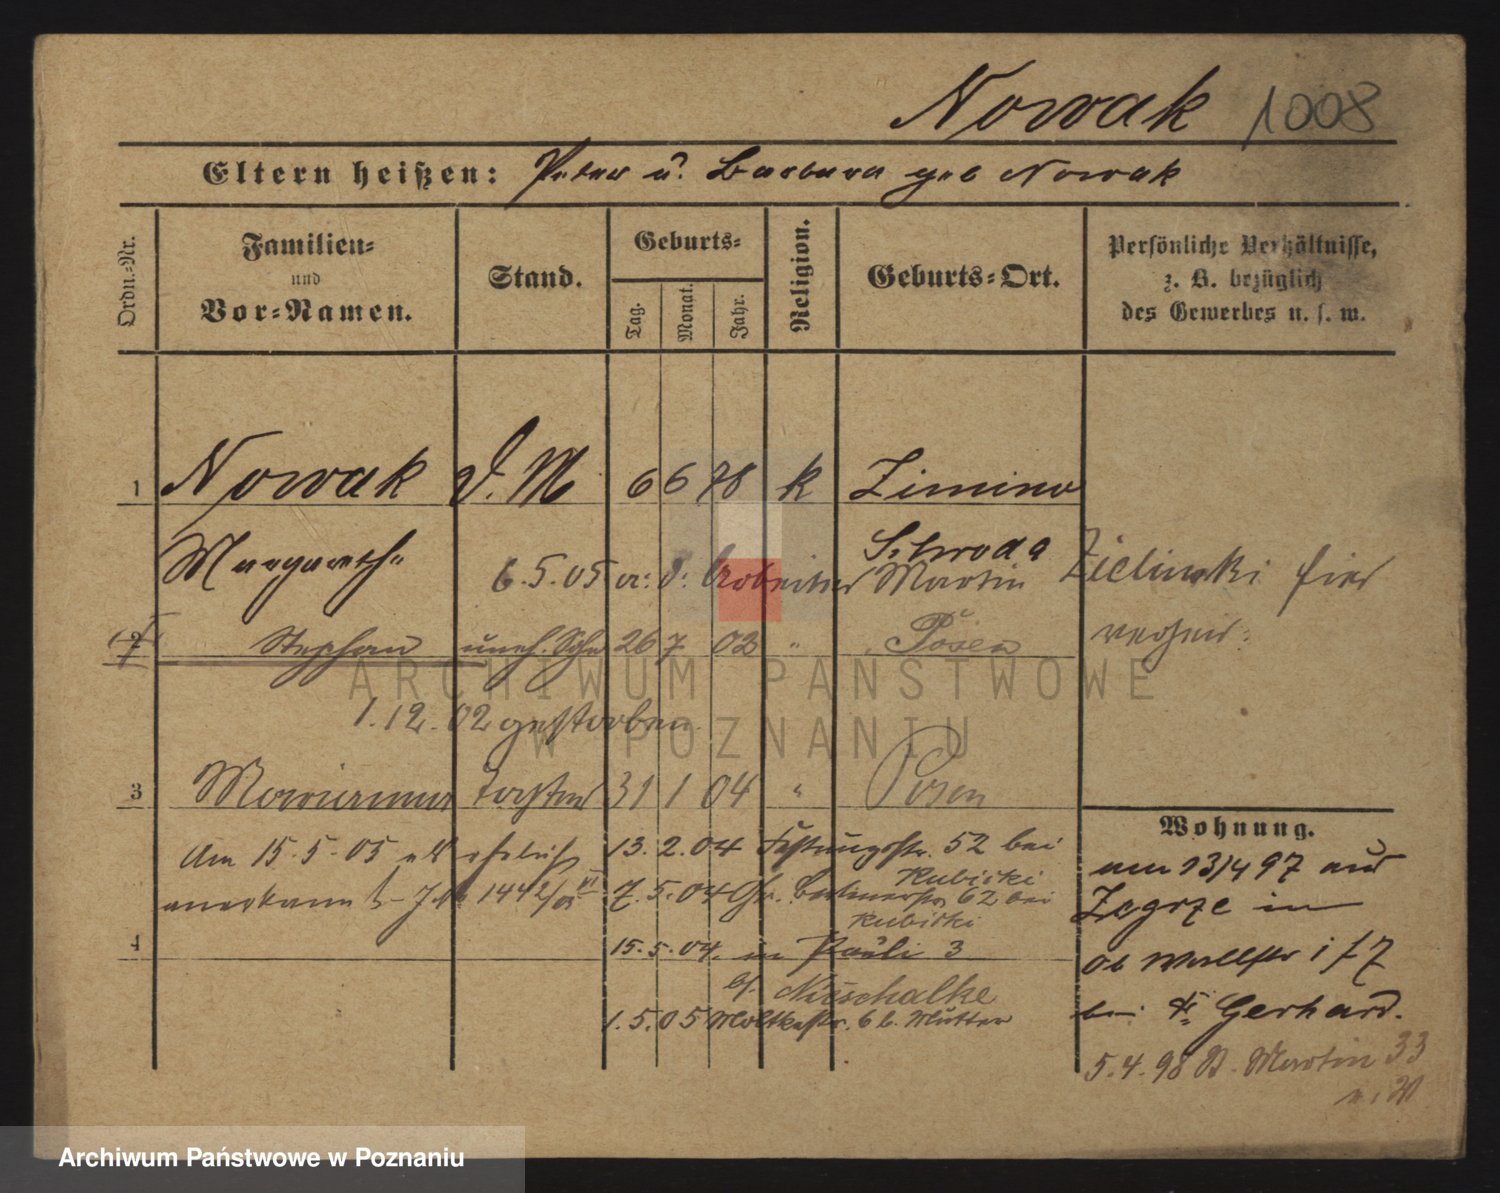 Nowak 1008
Eltern heißen: Peter u. Barbara geb Nowak
Ordn.-Nr.
Familien-
und
Vor-Namen.
Stand.
Geburts-
Tag.
Monat.
Jahr.
Religion.
Geburts-Ort.
Persönliche Verhältnisse,
z. B. bezüglich
des Gewerbes u. s. w.
1 Nowak D. M 6 6 78 k Zimino
Margareth Schroda
6.5.05 Arbeiter Martin Zielinski hier
verheir.
2 Stephan uneh. Sohn 26 7 02 " Posen
1.12.02 gestorben
3 Marianna Tochter 31 1 04 " Posen
Am 15.5.05 als ehelich
anerkannt J.N. 1442/05 VI
13.2.04 Festungsstr. 52 bei
Kubicki
7.5.04 Gr. Berlinerstr 62 bei
Kubicki
4
15.5.04. in Pauli 3
bf. Nieschalke
1.5.05 Moltkestr. 6 b. Mutter
Wohnung.
am 13/4 97 aus
Zegrze in
Ob Wallstr
bei Gerhard.
5.4.98 St. Martin 33
ARCHIWUM PAŃSTWOWE
W POZNANIU
Archiwum Państwowe w Poznaniu